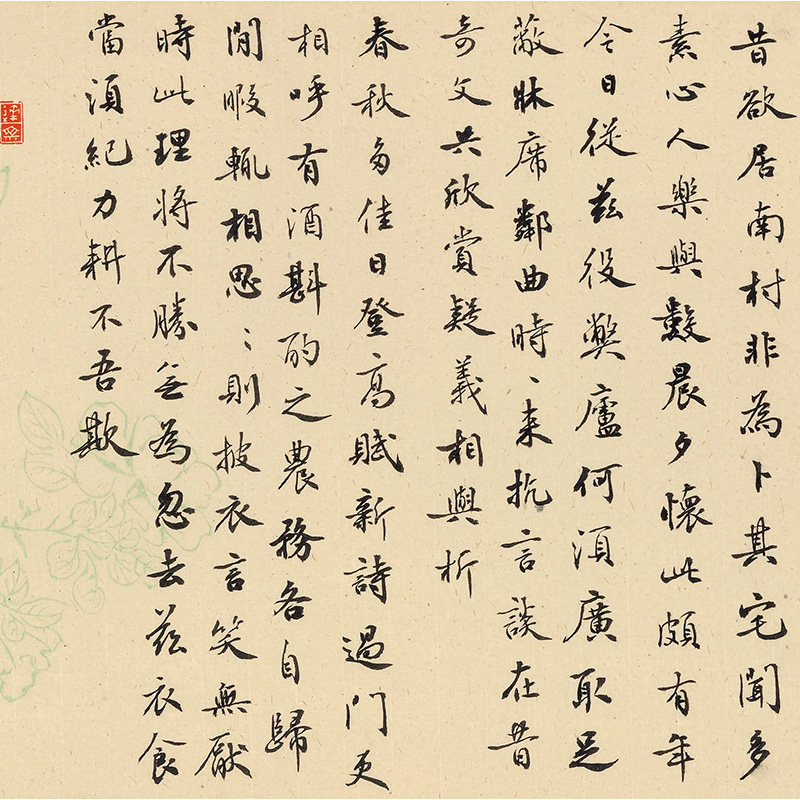 昔欲居南村非為卜其宅聞多
素心人樂與數晨夕懷此頗有年
今日從茲役弊廬何須廣取足
蔽牀席鄰曲時〻来抗言談在昔
奇文共欣賞疑義相與析
春秋多佳日登高賦新詩過門更
相呼有酒斟酌之農務各自歸
閒暇輒相思〻則披衣言笑無厭
時此理將不勝無為忽去茲衣食
當須紀力耕不吾欺